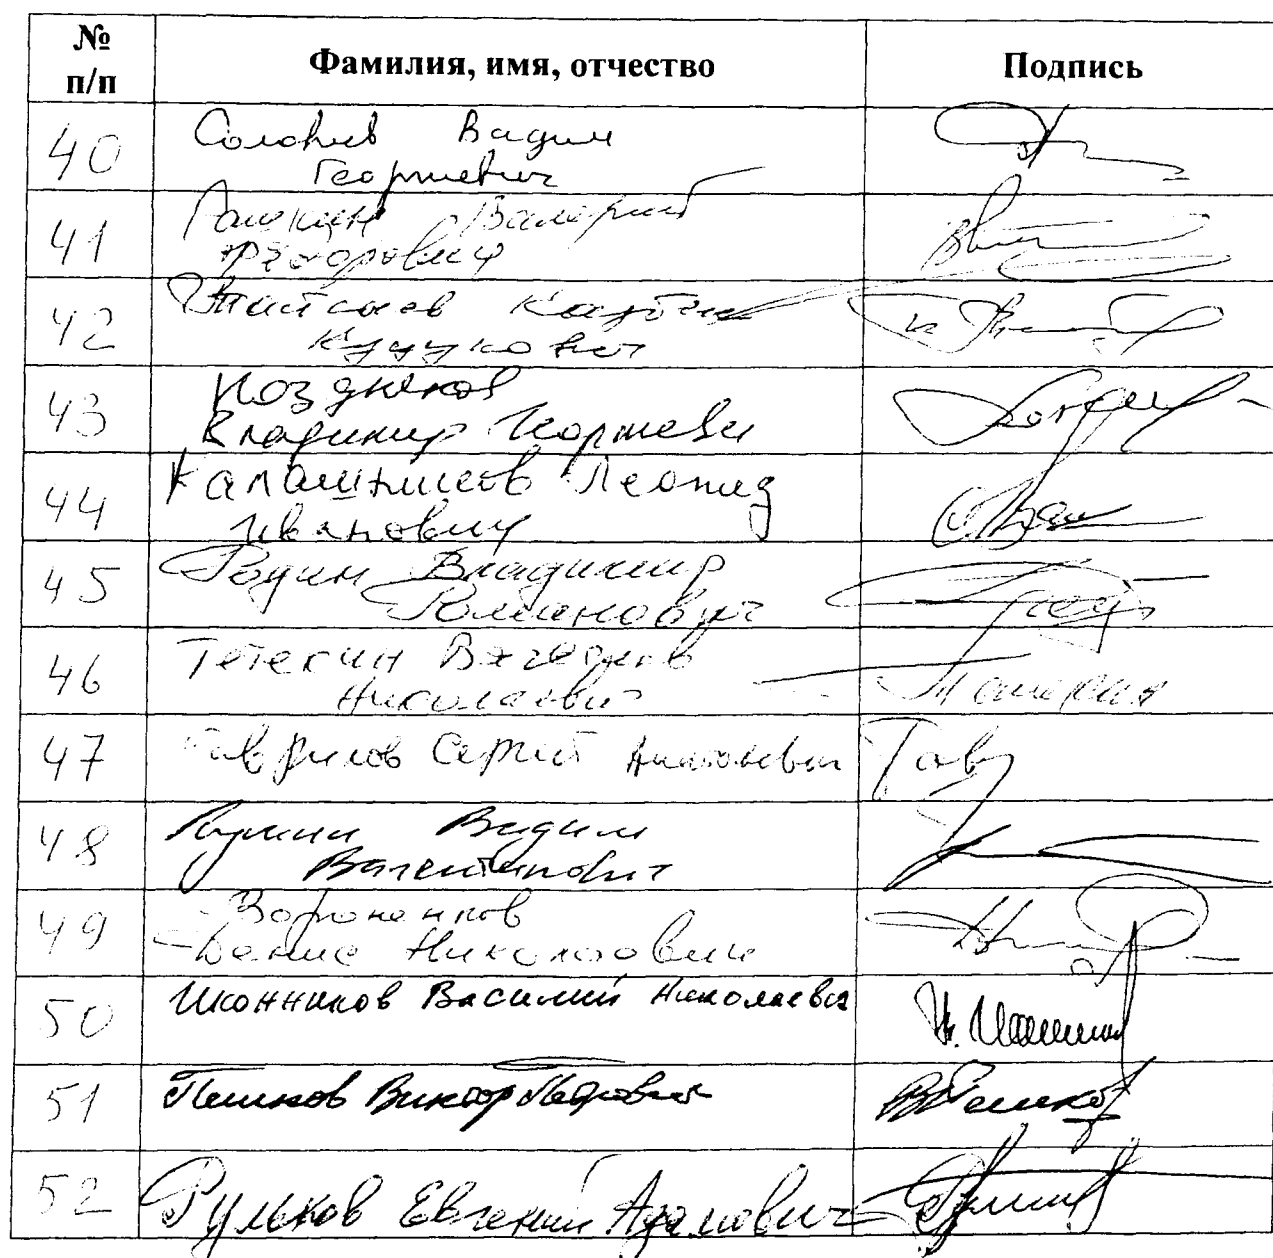 № п/п Фамилия, имя, отчество Подпись
40 Соловьев Вадим
Георгиевич
41 Рашкин Валерий
Фёдорович
42 Тайсаев Казбек
Куцукович
43 Поздняков
Владимир Георгиеви
44 Калашников Леонид
Иванович
45 Родин Владимир
Романович
46 Тетекин Вячеслав
Николаевич
47 Гаврилов Сергей Анатольевич Гав
48 Кумин Вадим
Валентинович
49 Вороненков
Денис Николаевич
50 Иконников Василий Николаевич
51 Пешков Виктор Петрович
52 Рульков Евгений Адамович